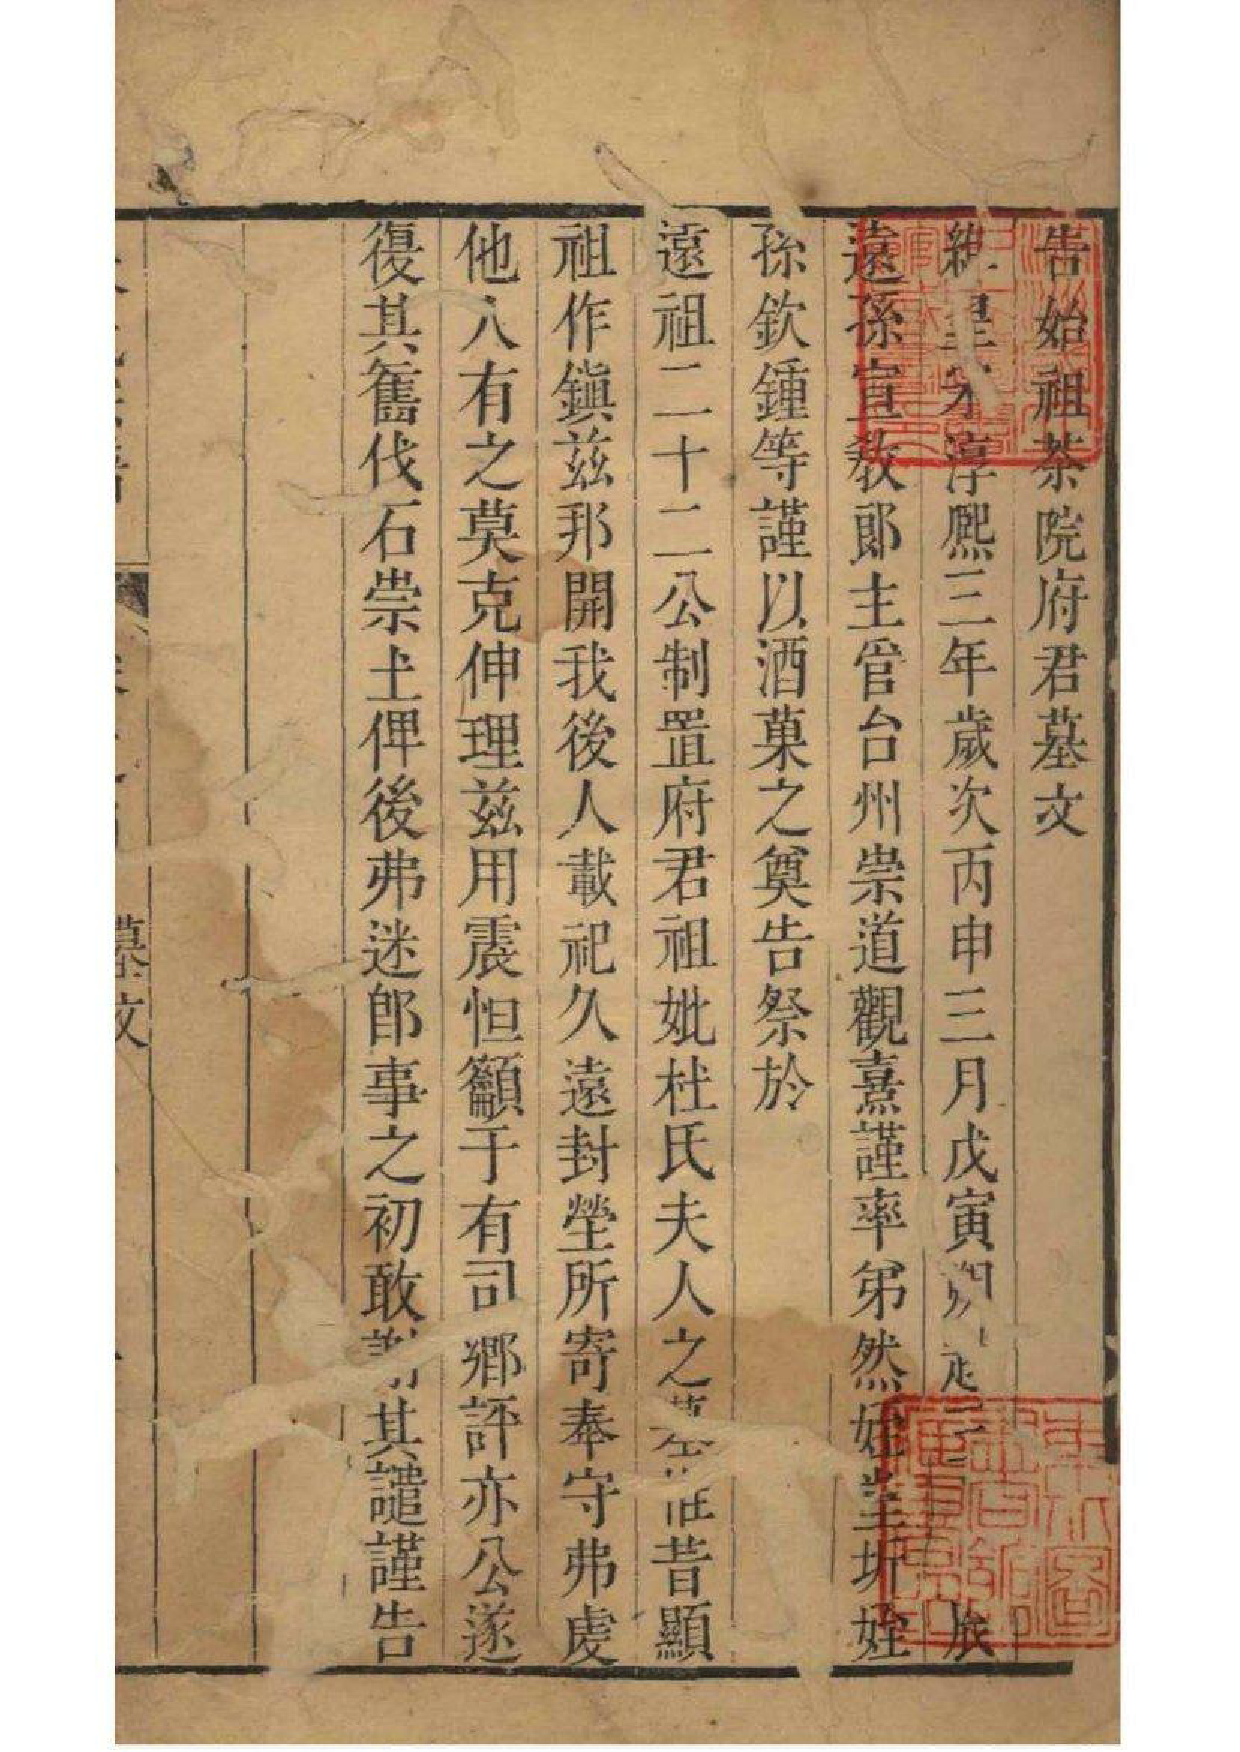 告始祖茶院府君墓文
維皇宋淳熙三年歲次丙申三月戊寅朔越族
遠孫宣教郎主管台州崇道觀熹謹率弟然姪堂圻姪
孫欽鍾等謹以酒菓之奠告祭於
遠祖二十二公制置府君祖妣杜氏夫人之墓惟昔顯
祖作鎮兹邦開我後人載祀久遠封塋所寄奉守弗虔
他人有之莫克伸理兹用震怛籲于有司鄉評亦公遂
復其舊伐石崇土俾後弗迷卽事之初敢謝其譴謹告
墓文